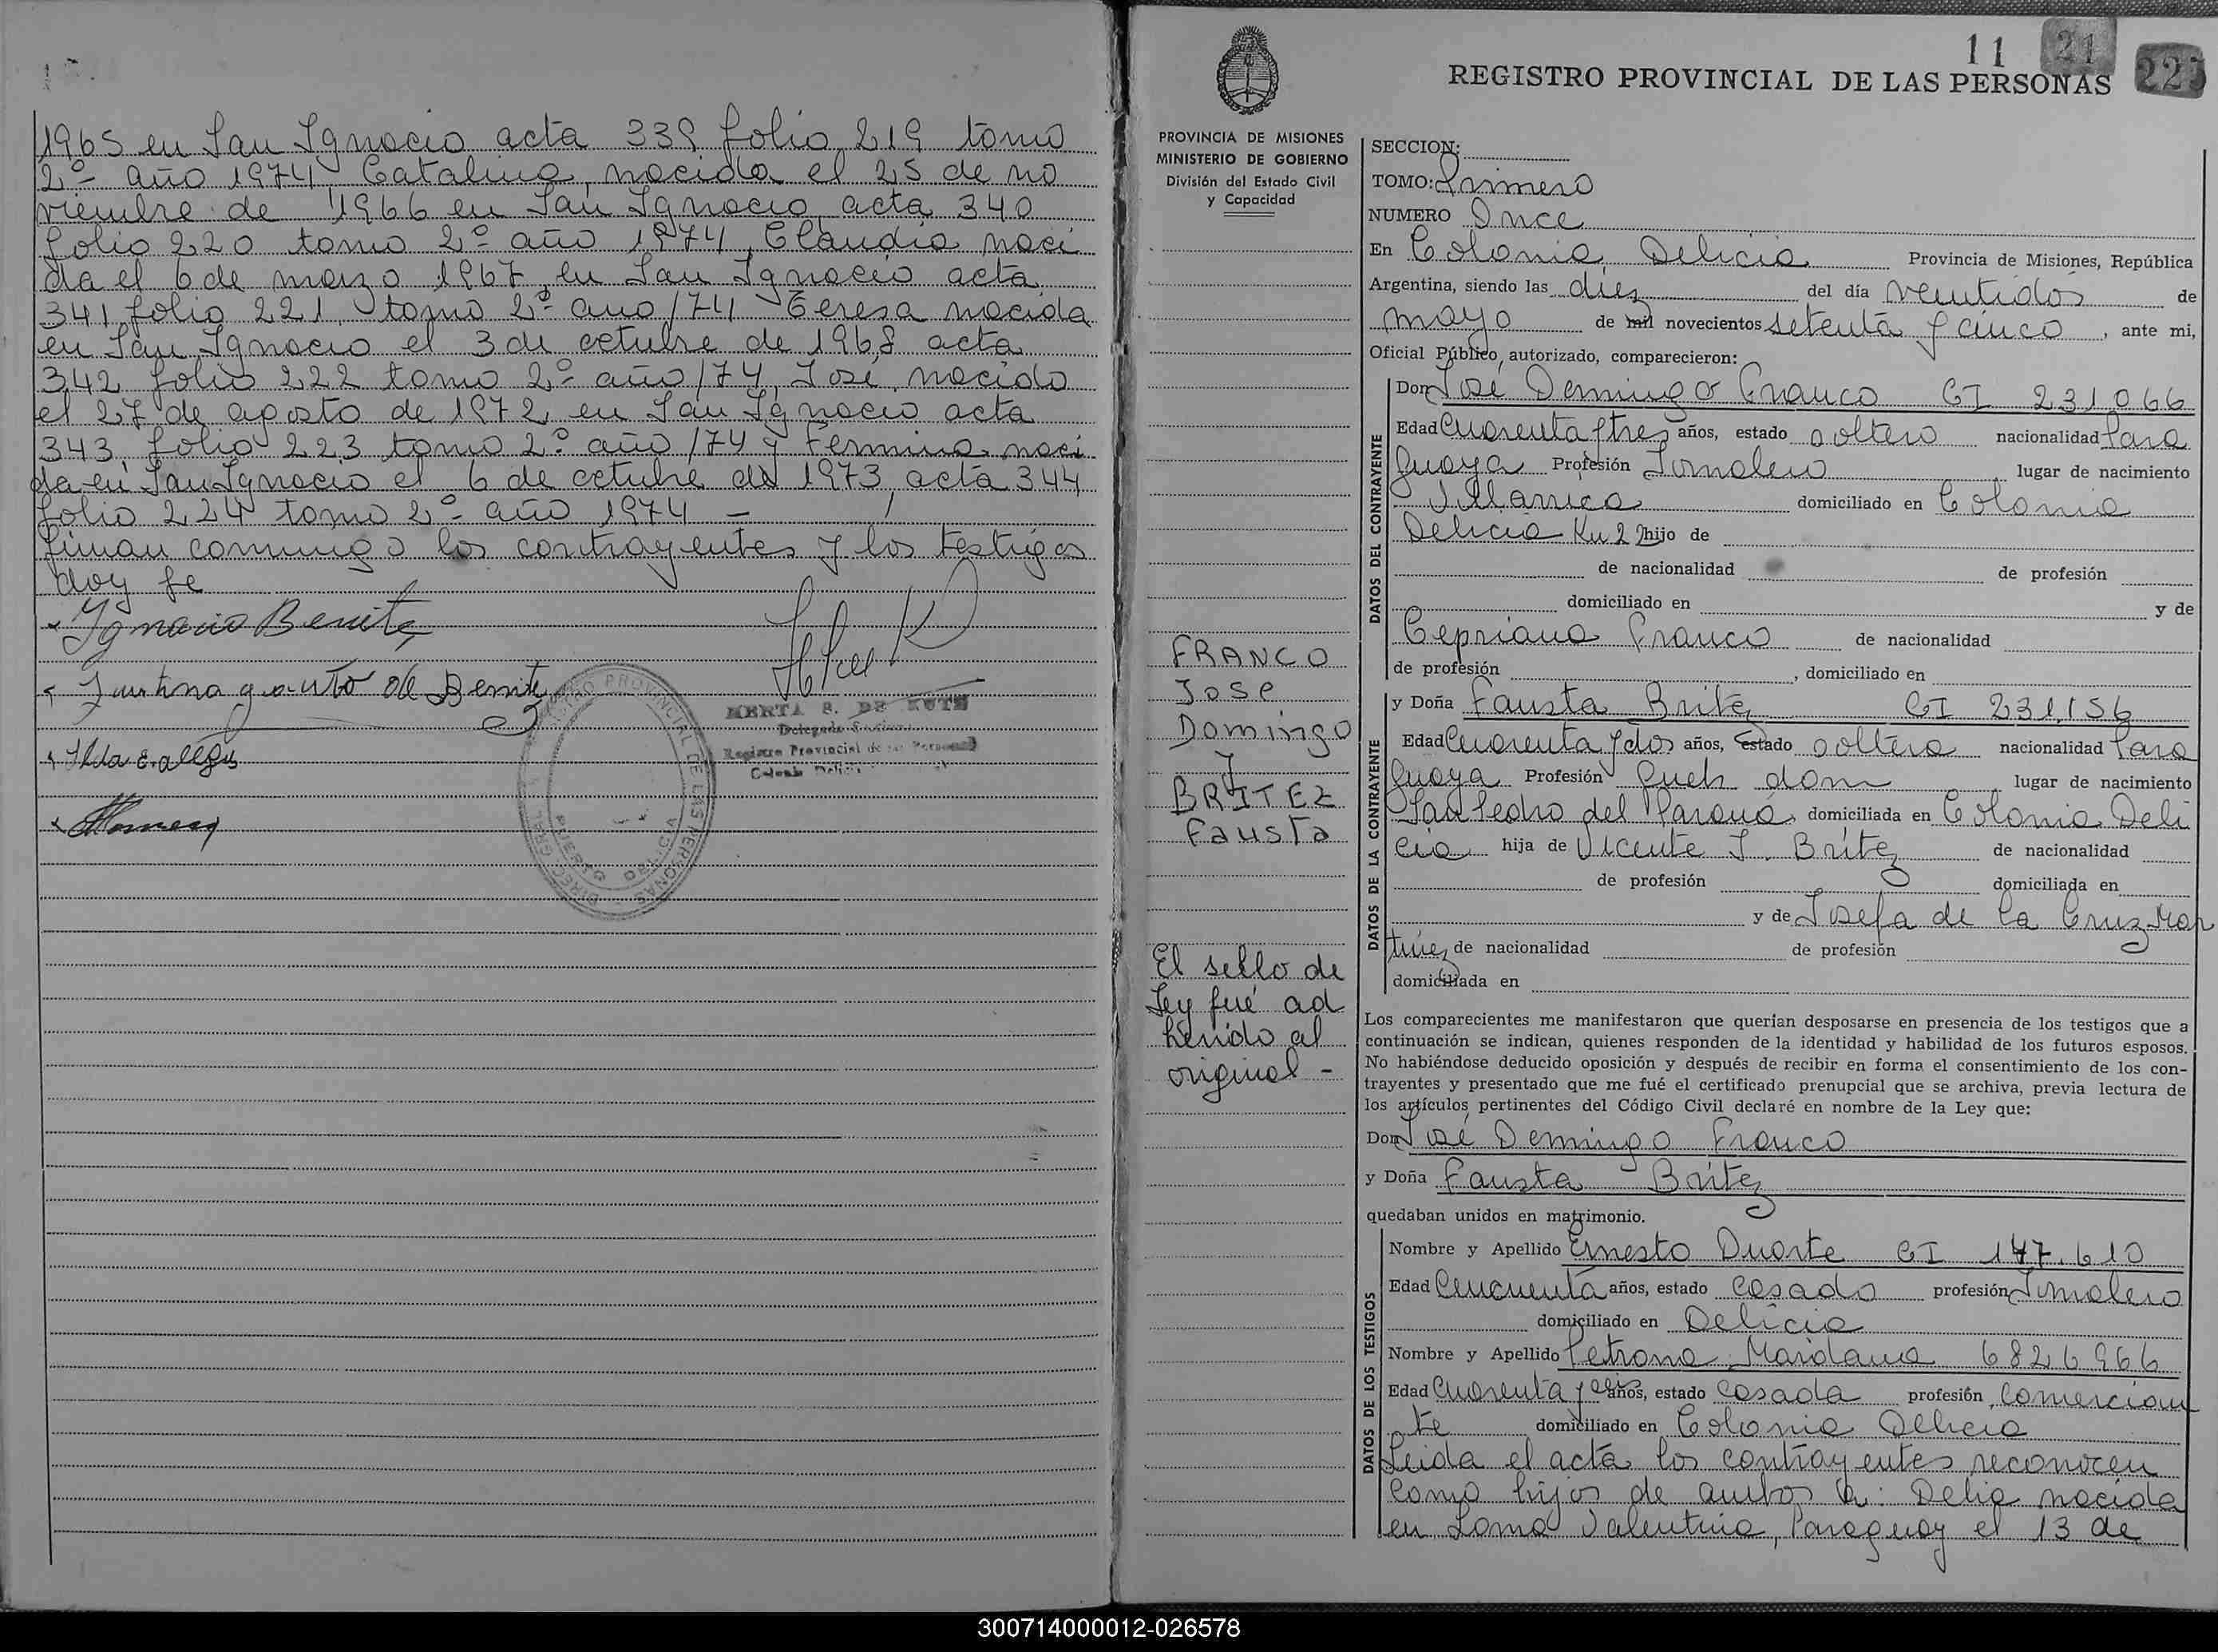 1965 en San Ignacio acta 339 folio 219 tomo
2º año 1974, Catalina, nacida el 25 de no
viembre de 1966 en San Ignacio, acta 340
folio 220 tomo 2º año 1974, Claudia naci
da el 6 de marzo 1967, en San Ignacio acta
341 folio 221 tomo 2º año /74 Teresa nacida
en San Ignacio el 3 de octubre de 1968 acta
342 folio 222 tomo 2º año /74, José, nacido
el 27 de agosto de 1972 en San Ignacio acta
343, folio 223 tomo 2º año /74 y Fermina naci
da en San Ignacio el 6 de octubre de 1973, acta 344
folio 224 tomo 2º año 1974 -
firman conmigo los contrayentes y los testigos
doy fe
Ignacio Benitez
de Benitez
HERTA S. DE KUTH
Registro Provincial de las Personas
REGISTRO PROVINCIAL DE LAS PERSONAS
PUERTO DELICIA
11 21
225
REGISTRO PROVINCIAL DE LAS PERSONAS
PROVINCIA DE MISIONES
MINISTERIO DE GOBIERNO
División del Estado Civil
y Capacidad
FRANCO
José
Domingo
y
BRITEZ
Fausta
El sello de
ley fué ad
herido al
original -
SECCION:
TOMO: Primero
NUMERO Once
En Colonia Delicia Provincia de Misiones, República
Argentina, siendo las diez del día veintidós de
mayo de mil novecientos setenta y cinco, ante mi,
Oficial Público, autorizado, comparecieron:
DATOS DEL CONTRAYENTE
Don José Domingo Franco CI 231.066
Edad Cuarenta y tres años, estado soltero nacionalidad Para
guaya Profesión Jornalero lugar de nacimiento
Villarrica domiciliado en Colonia
Delicia Km 2 hijo de
de nacionalidad de profesión
domiciliado en y de
Cepriana Franco de nacionalidad
de profesión , domiciliado en
DATOS DE LA CONTRAYENTE
y Doña Fausta Britez CI 231.156
Edad Cuarenta y dos años, estado soltera nacionalidad Para
guaya Profesión Queh dom lugar de nacimiento
San Pedro del Paraná domiciliada en Colonia Deli
cia hija de Vicente J. Britez de nacionalidad
de profesión domiciliada en
y de Josefa de la Cruz Mar
tinez de nacionalidad de profesión
domiciliada en
Los comparecientes me manifestaron que querían desposarse en presencia de los testigos que a
continuación se indican, quienes responden de la identidad y habilidad de los futuros esposos.
No habiéndose deducido oposición y después de recibir en forma el consentimiento de los con-
trayentes y presentado que me fué el certificado prenupcial que se archiva, previa lectura de
los artículos pertinentes del Código Civil declaré en nombre de la Ley que:
Don José Domingo Franco
y Doña Fausta Britez
quedaban unidos en matrimonio.
DATOS DE LOS TESTIGOS
Nombre y Apellido Ernesto Duarte CI 147.610
Edad Cincuenta años, estado casado profesión Jornalero
domiciliado en Delicia
Nombre y Apellido Petrona Maidana 6826966
Edad Cuarenta y seis años, estado casada profesión comercian
te domiciliado en Colonia Delicia
Leida el acta los contrayentes reconocen
como hijos de ambos a: Delia nacida
en Loma Valentina, Paraguay el 13 de
300714000012-026578